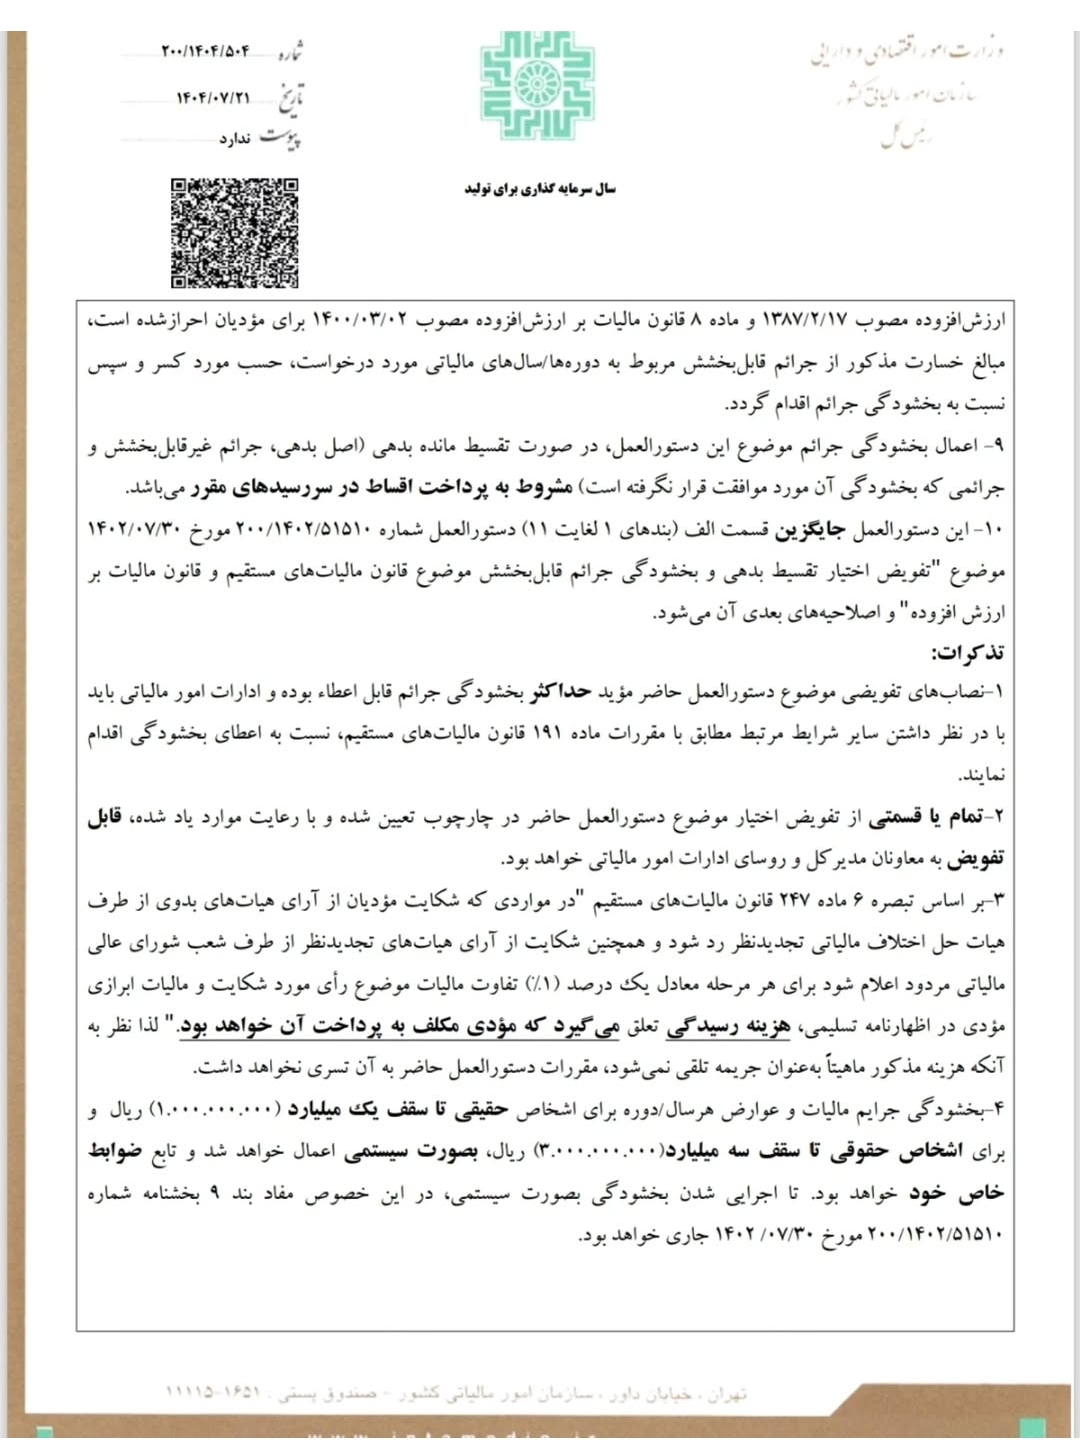 وزارت امور اقتصادی و دارایی
سازمان امور مالیاتی کشور
رئیس کل
شماره ۲۰۰/۱۴۰۴/۵۰۴
تاریخ ۱۴۰۴/۰۷/۲۱
پیوست ندارد
سال سرمایه گذاری برای تولید
ارزش‌افزوده مصوب ۱۳۸۷/۲/۱۷ و ماده ۸ قانون مالیات بر ارزش‌افزوده مصوب ۱۴۰۰/۰۳/۰۲ برای مؤدیان احرازشده است،
مبالغ خسارت مذکور از جرائم قابل‌بخشش مربوط به دوره‌ها/سال‌های مالیاتی مورد درخواست، حسب مورد کسر و سپس
نسبت به بخشودگی جرائم اقدام گردد.
۹- اعمال بخشودگی جرائم موضوع این دستورالعمل، در صورت تقسیط مانده بدهی (اصل بدهی، جرائم غیرقابل‌بخشش و
جرائمی که بخشودگی آن مورد موافقت قرار نگرفته است) مشروط به پرداخت اقساط در سررسیدهای مقرر می‌باشد.
۱۰- این دستورالعمل جایگزین قسمت الف (بندهای ۱ لغایت ۱۱) دستورالعمل شماره ۲۰۰/۱۴۰۲/۵۱۵۱۰ مورخ ۱۴۰۲/۰۷/۳۰
موضوع "تفویض اختیار تقسیط بدهی و بخشودگی جرائم قابل‌بخشش موضوع قانون مالیات‌های مستقیم و قانون مالیات بر
ارزش افزوده" و اصلاحیه‌های بعدی آن می‌شود.
تذکرات:
۱-نصاب‌های تفویضی موضوع دستورالعمل حاضر مؤید حداکثر بخشودگی جرائم قابل اعطاء بوده و ادارات امور مالیاتی باید
با در نظر داشتن سایر شرایط مرتبط مطابق با مقررات ماده ۱۹۱ قانون مالیات‌های مستقیم، نسبت به اعطای بخشودگی اقدام
نمایند.
۲-تمام یا قسمتی از تفویض اختیار موضوع دستورالعمل حاضر در چارچوب تعیین شده و با رعایت موارد یاد شده، قابل
تفویض به معاونان مدیرکل و روسای ادارات امور مالیاتی خواهد بود.
۳-بر اساس تبصره ۶ ماده ۲۴۷ قانون مالیات‌های مستقیم "در مواردی که شکایت مؤدیان از آرای هیات‌های بدوی از طرف
هیات حل اختلاف مالیاتی تجدیدنظر رد شود و همچنین شکایت از آرای هیات‌های تجدیدنظر از طرف شعب شورای عالی
مالیاتی مردود اعلام شود برای هر مرحله معادل یک درصد (۱٪) تفاوت مالیات موضوع رأی مورد شکایت و مالیات ابرازی
مؤدی در اظهارنامه تسلیمی، هزینه رسیدگی تعلق می‌گیرد که مؤدی مکلف به پرداخت آن خواهد بود." لذا نظر به
آنکه هزینه مذکور ماهیتاً به‌عنوان جریمه تلقی نمی‌شود، مقررات دستورالعمل حاضر به آن تسری نخواهد داشت.
۴-بخشودگی جرایم مالیات و عوارض هرسال/دوره برای اشخاص حقیقی تا سقف یک میلیارد (۱.۰۰۰.۰۰۰.۰۰۰) ریال و
برای اشخاص حقوقی تا سقف سه میلیارد(۳.۰۰۰.۰۰۰.۰۰۰) ریال، بصورت سیستمی اعمال خواهد شد و تابع ضوابط
خاص خود خواهد بود. تا اجرایی شدن بخشودگی بصورت سیستمی، در این خصوص مفاد بند ۹ بخشنامه شماره
۲۰۰/۱۴۰۲/۵۱۵۱۰ مورخ ۱۴۰۲/۰۷/۳۰ جاری خواهد بود.
تهران ، خیابان داور ، سازمان امور مالیاتی کشور - صندوق پستی ، ۱۶۵۱-۱۱۱۱۵